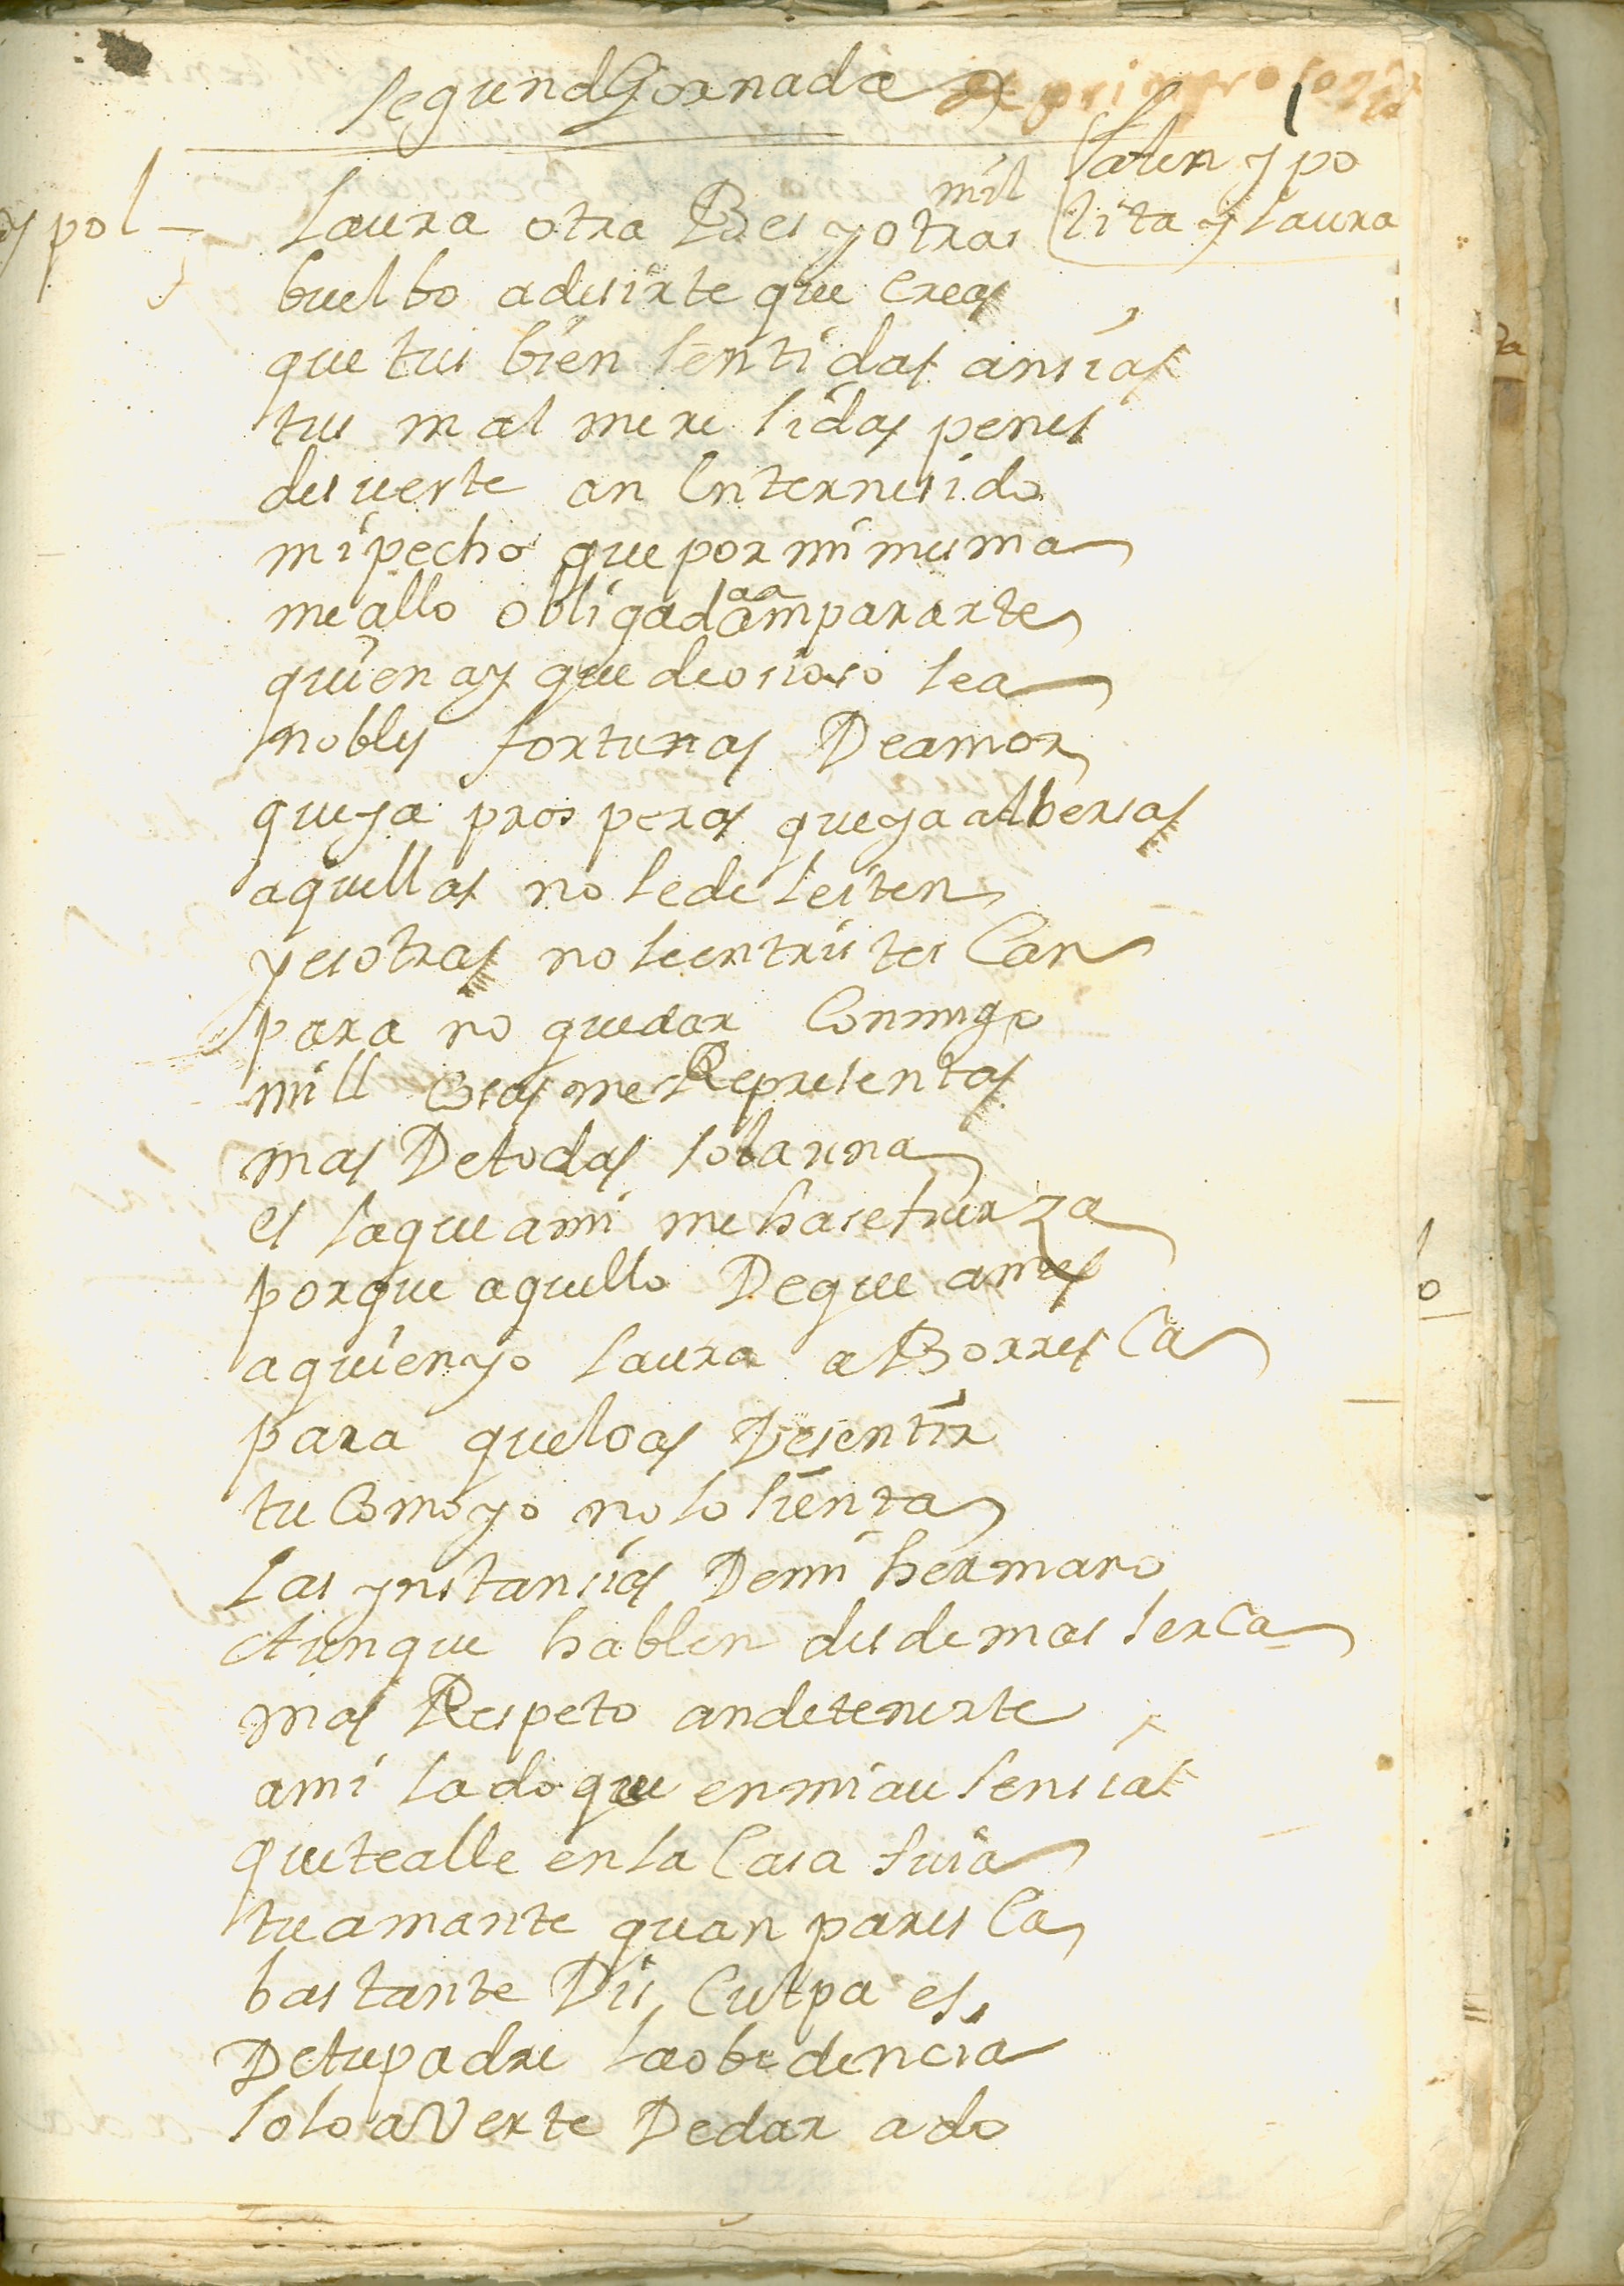 segunda Jornada
salen ypo
lita y laura
ypol
laura otra Bes y otras mil
buelbo adesirte que creas
que tus bien sentidas ansias
tus mal meresidas penas
desuerte an Enternesido
mi pecho que por mi mesma
me allo obligada a ampararte
quien ay que deosioso sea
nobles fortunas De amor
que ya prosperas que ya adbersas
aquellas no se deleiten
y esotras no le entristescan
para no quedar Conmigo
mill Cosas me Representas
mas De todas sola una
es la que ami me hase fuerza
porque aquello De que ames
a quien yo laura aBorresca
para que lo as De sentir
tu Como yo no lo sienta
las ynstansias De mi hermano
Aunque hablen desde mas serca
mas Respeto an de tenerte
ami lado que en mi ausensia
que te alle en la Casa suia
tu amante quan paresca
bastante Dis, Culpa es,
De tu padre la obedencia
solo a Verte De dar a do